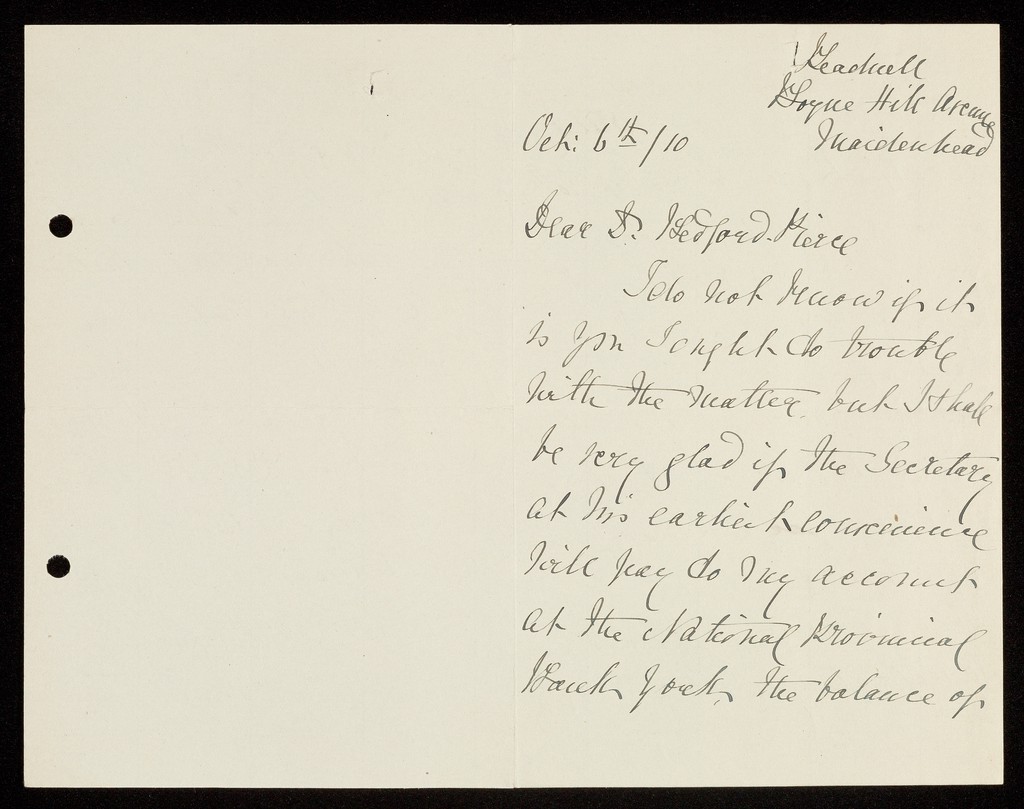 Boyne Hill Avenue
Maidenhead
Oct: 6th/10
Dear Dr. Bedford-Pierce
I do not know if it
is you I ought to trouble
with the matter, but I shall
be very glad if the Secretary
at his earliest convenience
will pay to my account
at the National Provincial
Bank York, the balance of